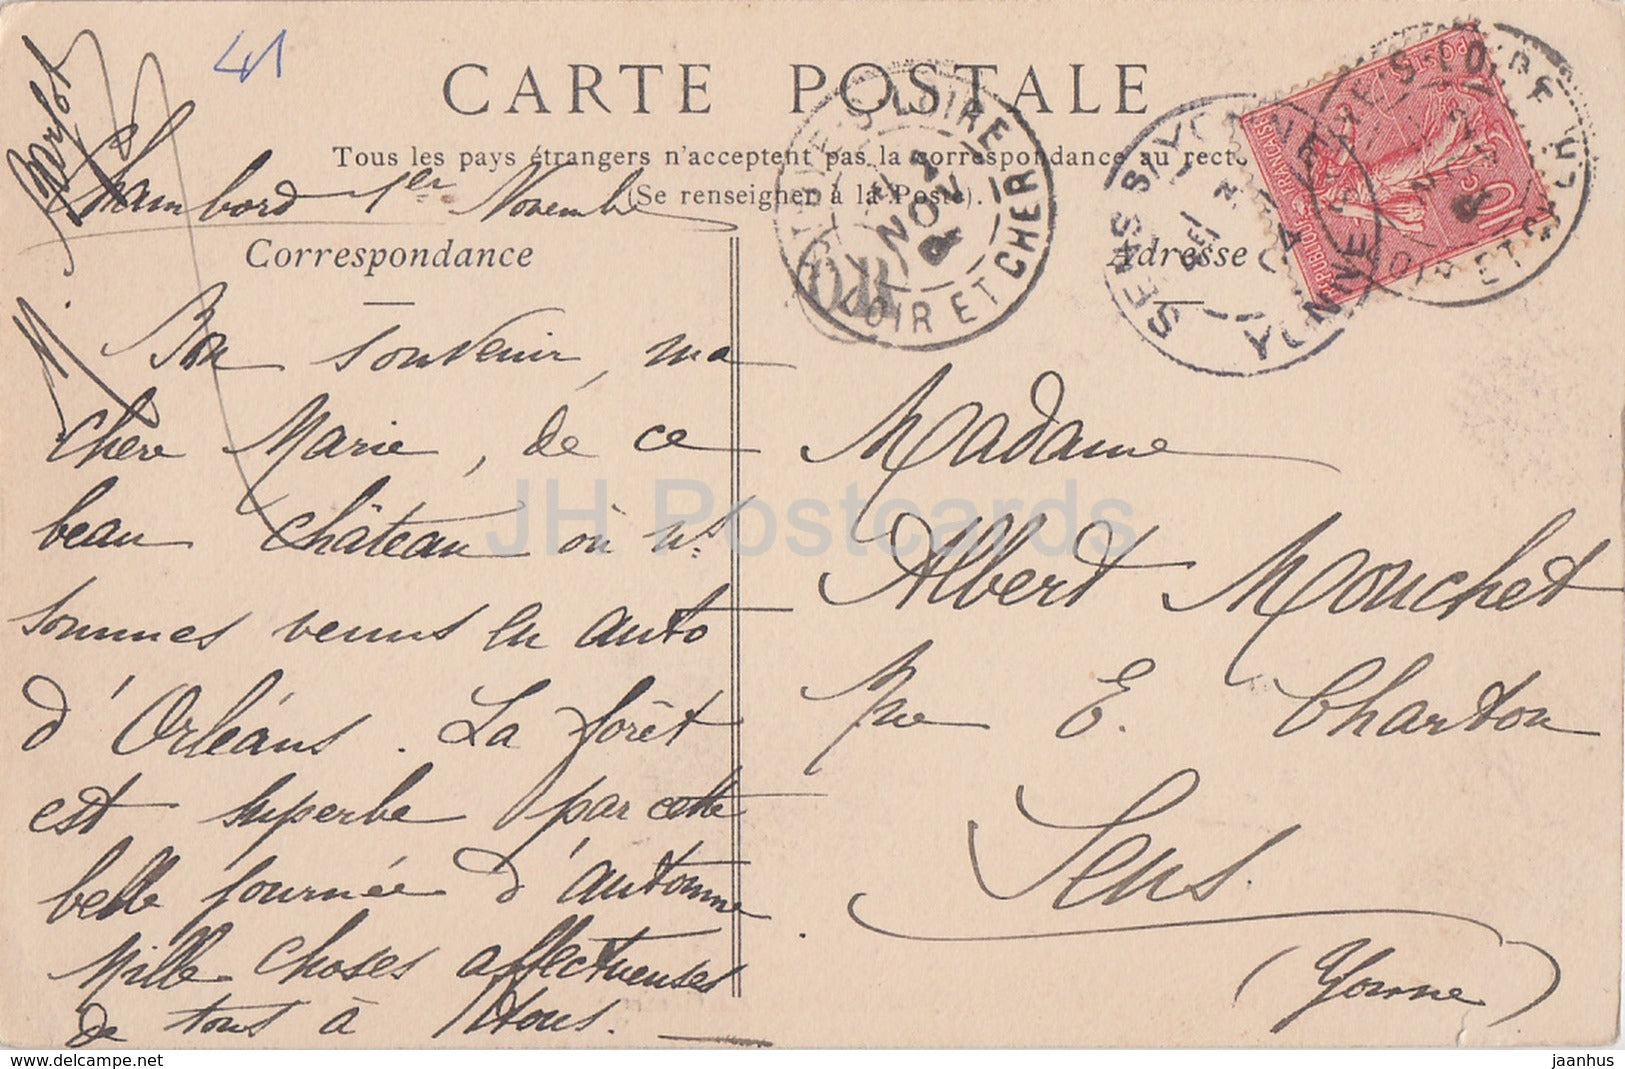 41
CARTE POSTALE
Tous les pays étrangers n'acceptent pas la correspondance au recto
(Se renseigner à la Poste).
Chambord 1er Novembre
Correspondance
Adresse
Bon souvenir, ma
chère Marie, de ce
beau château où ns
sommes venus en auto
d'Orléans. La forêt
est superbe par cette
belle journée d'automne
Mille choses affectueuses
de tous à tous.
Madame
Albert Mouchet
Rue E. Charton
Sens.
(Yonne)
LOIRE
NOV
LOIR ET CHER
SENS S YONNE
YONNE
POSTES
10 c
JH Postcards
www.delcampe.net
jaanhus